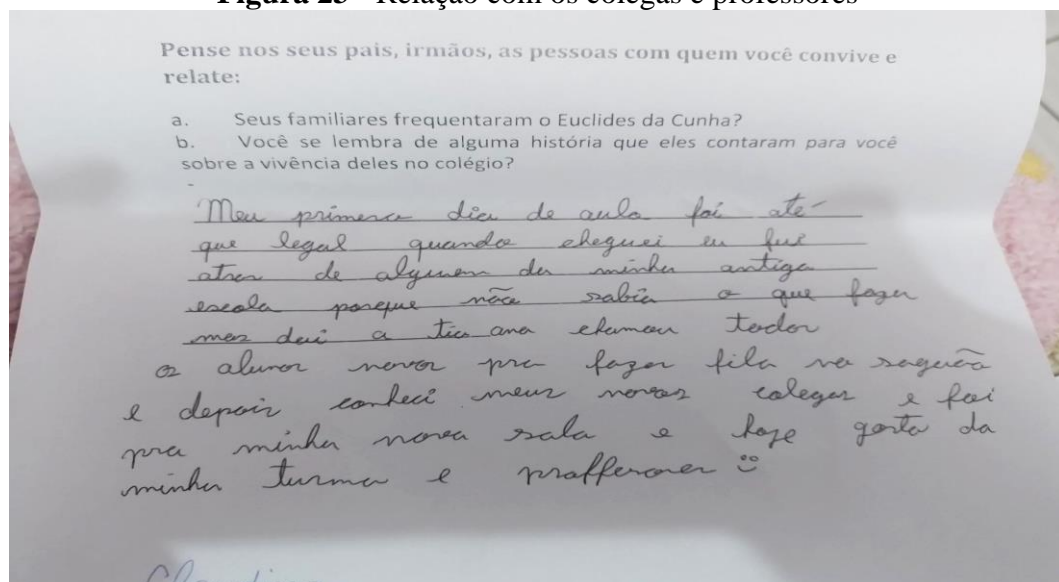 Figura 25 - Relação com os colegas e professores
Pense nos seus pais, irmãos, as pessoas com quem você convive e
relate:
a. Seus familiares frequentaram o Euclides da Cunha?
b. Você se lembra de alguma história que eles contaram para você
sobre a vivência deles no colégio?
-
Meu primero dia de aula foi até
que legal quando cheguei eu fui
atras de alguem da minha antiga
escola porque não sabia o que fazer
mas dai a tia ana chamou todos
os alunos novos pra fazer fila no saguão
e depois conheci meus novos colegas e foi
pra minha nova sala e hoje gosto da
minha turma e proffesores